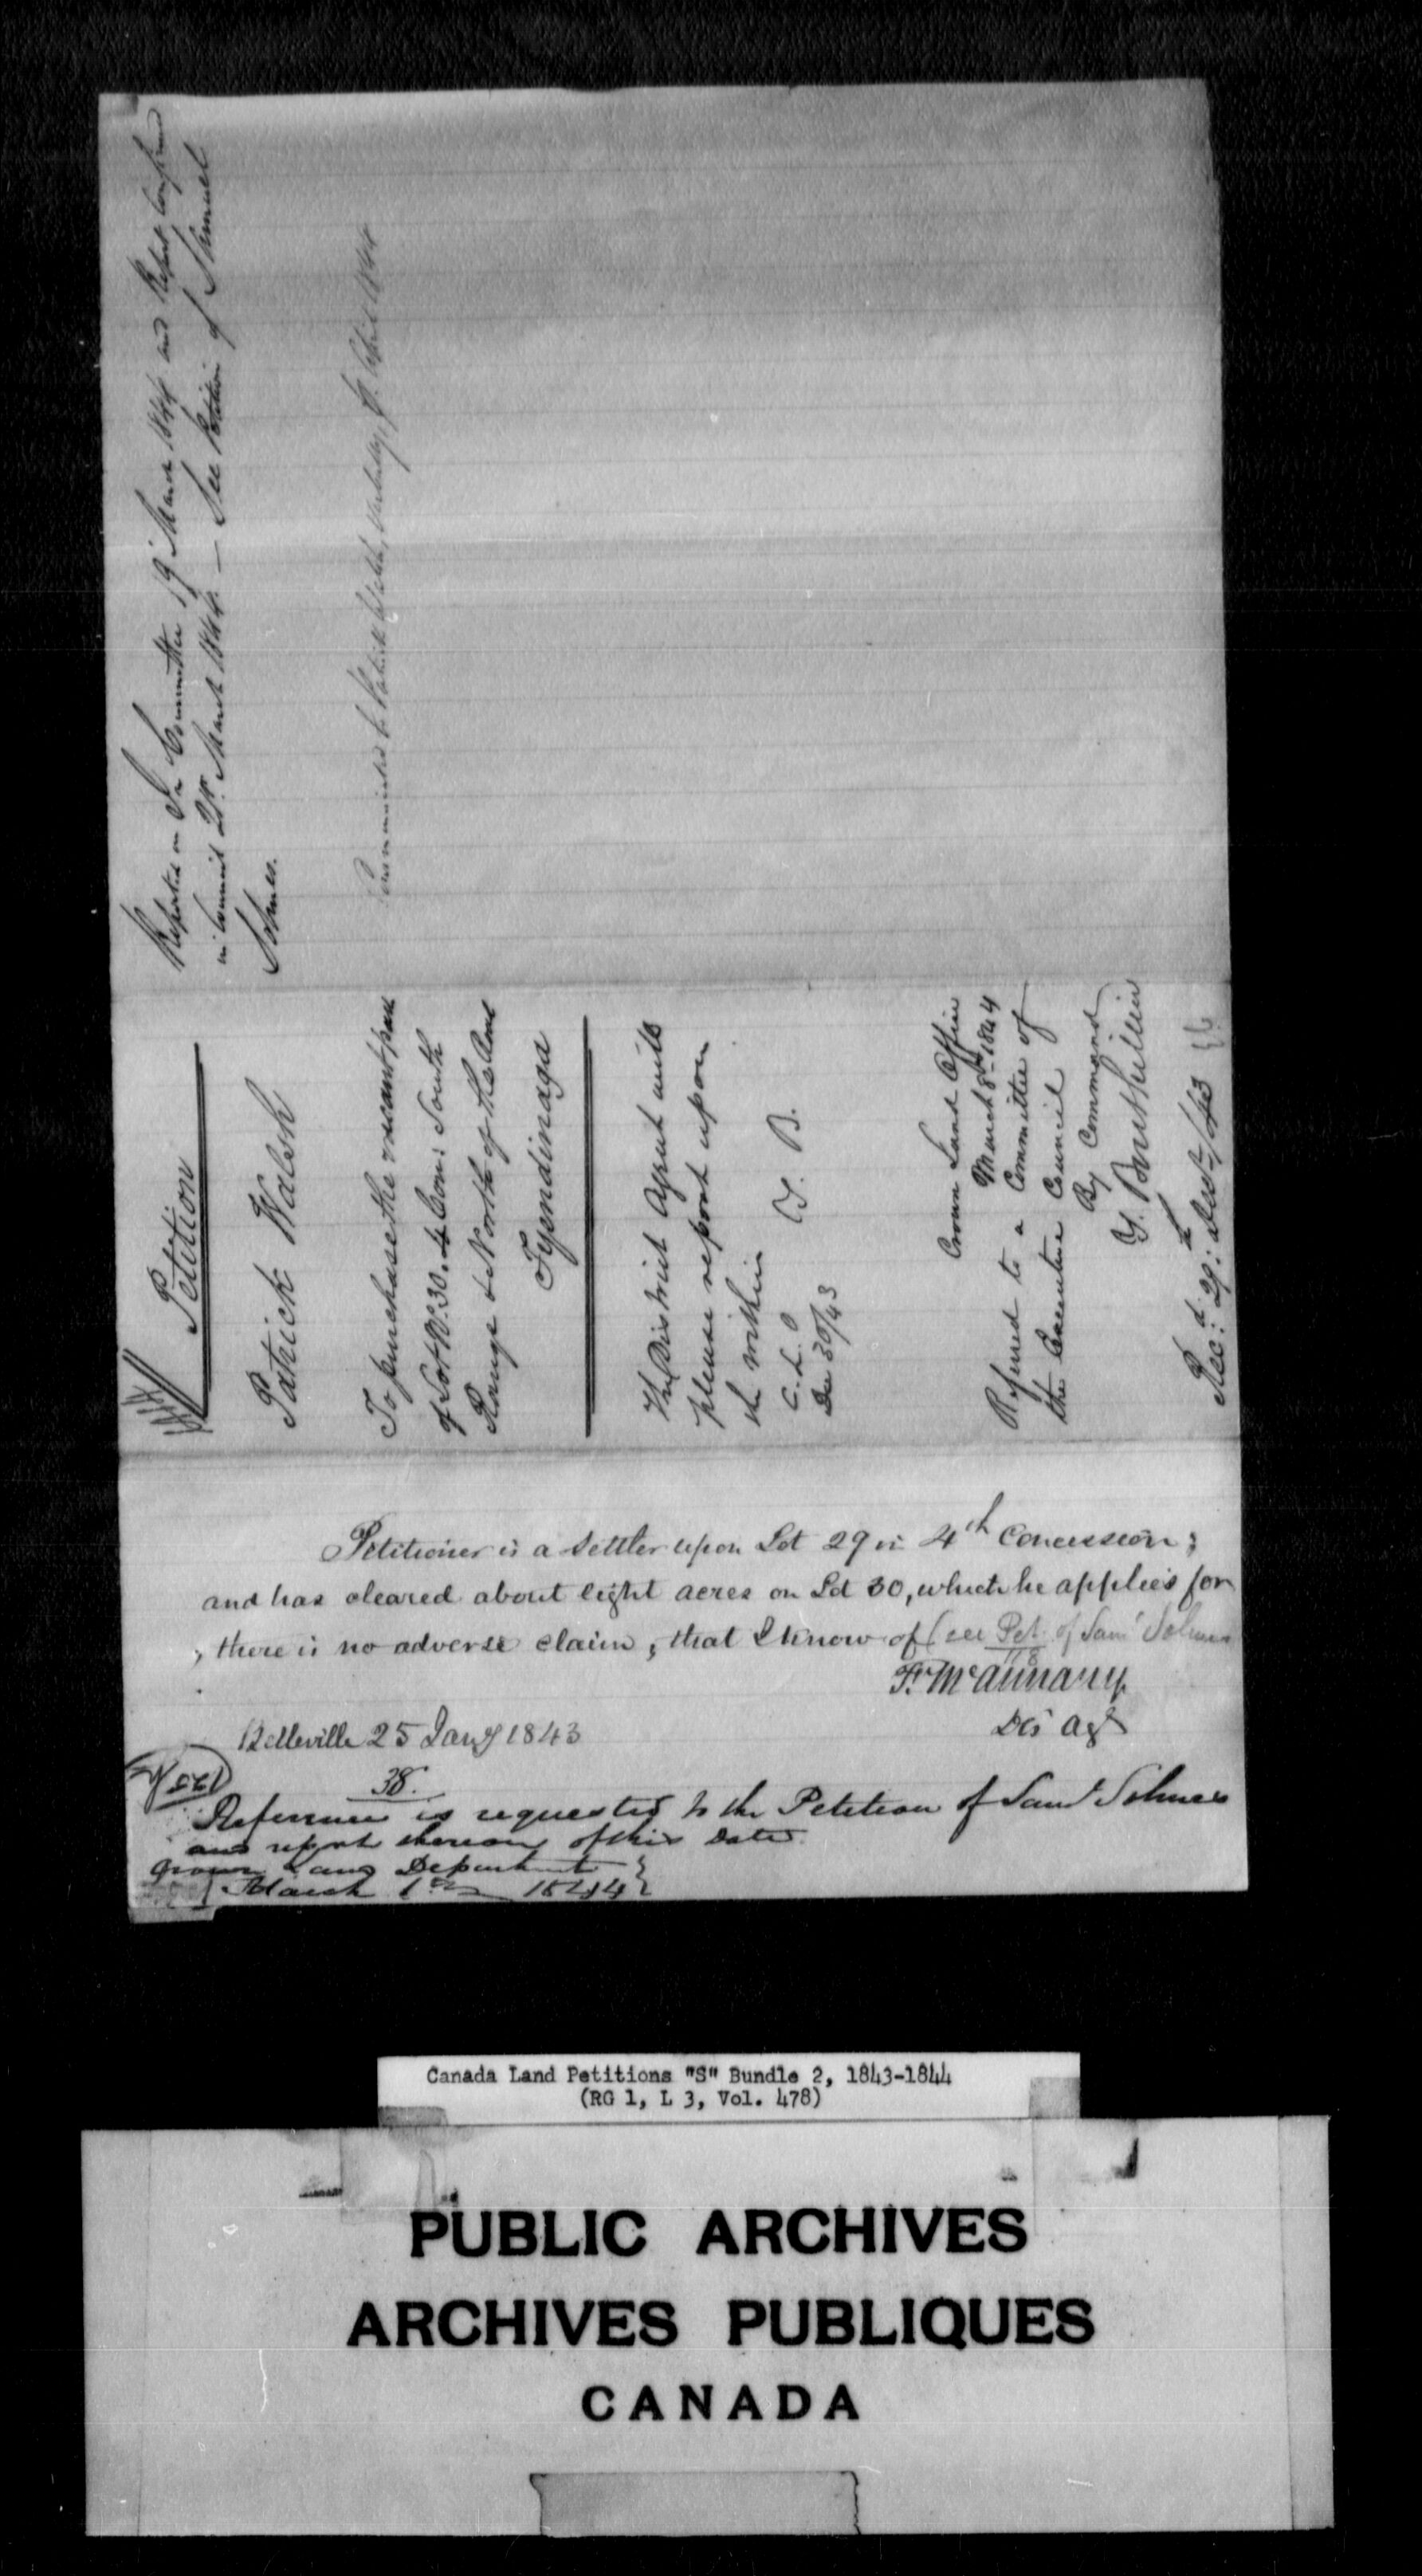 Reported on In Committee 19 March 1844 and Report confirmed
in Council 21st March 1844 — See Petition of Samuel
Solmes.
Communicated to Patrick Walsh, 9 April 1844
Petition
Patrick Walsh
To purchase the vacant part
of Lot No. 30. 4 Con: South
Range & North of the Road
Tyendinaga
The District Agent will
please report upon
the within
C. L. O T. B.
Dec 30/43
Crown Land Office
March 8th 1844
Referred to a Committee of
the Executive Council
By Command
T. Bouthillier
Rec:d 29:th Decr/43
Petitioner is a Settler upon Lot 29 in 4th Concession;
and has cleared about eight acres on Lot 30, which he applies for
, there is no adverse claim, that I know of (see Pet. of Saml Solmes
118
F. McAnnany
Dis Agt
Belleville 25 Jany 1843
38.
Reference is requested to the Petition of Saml Solmes
and report thereon of this date.
Crown Land Department
March 1st 1844
Canada Land Petitions "S" Bundle 2, 1843-1844
(RG 1, L 3, Vol. 478)
PUBLIC ARCHIVES
ARCHIVES PUBLIQUES
CANADA